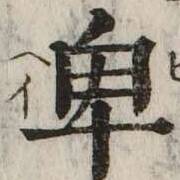 ヒ
卑
ヘイ